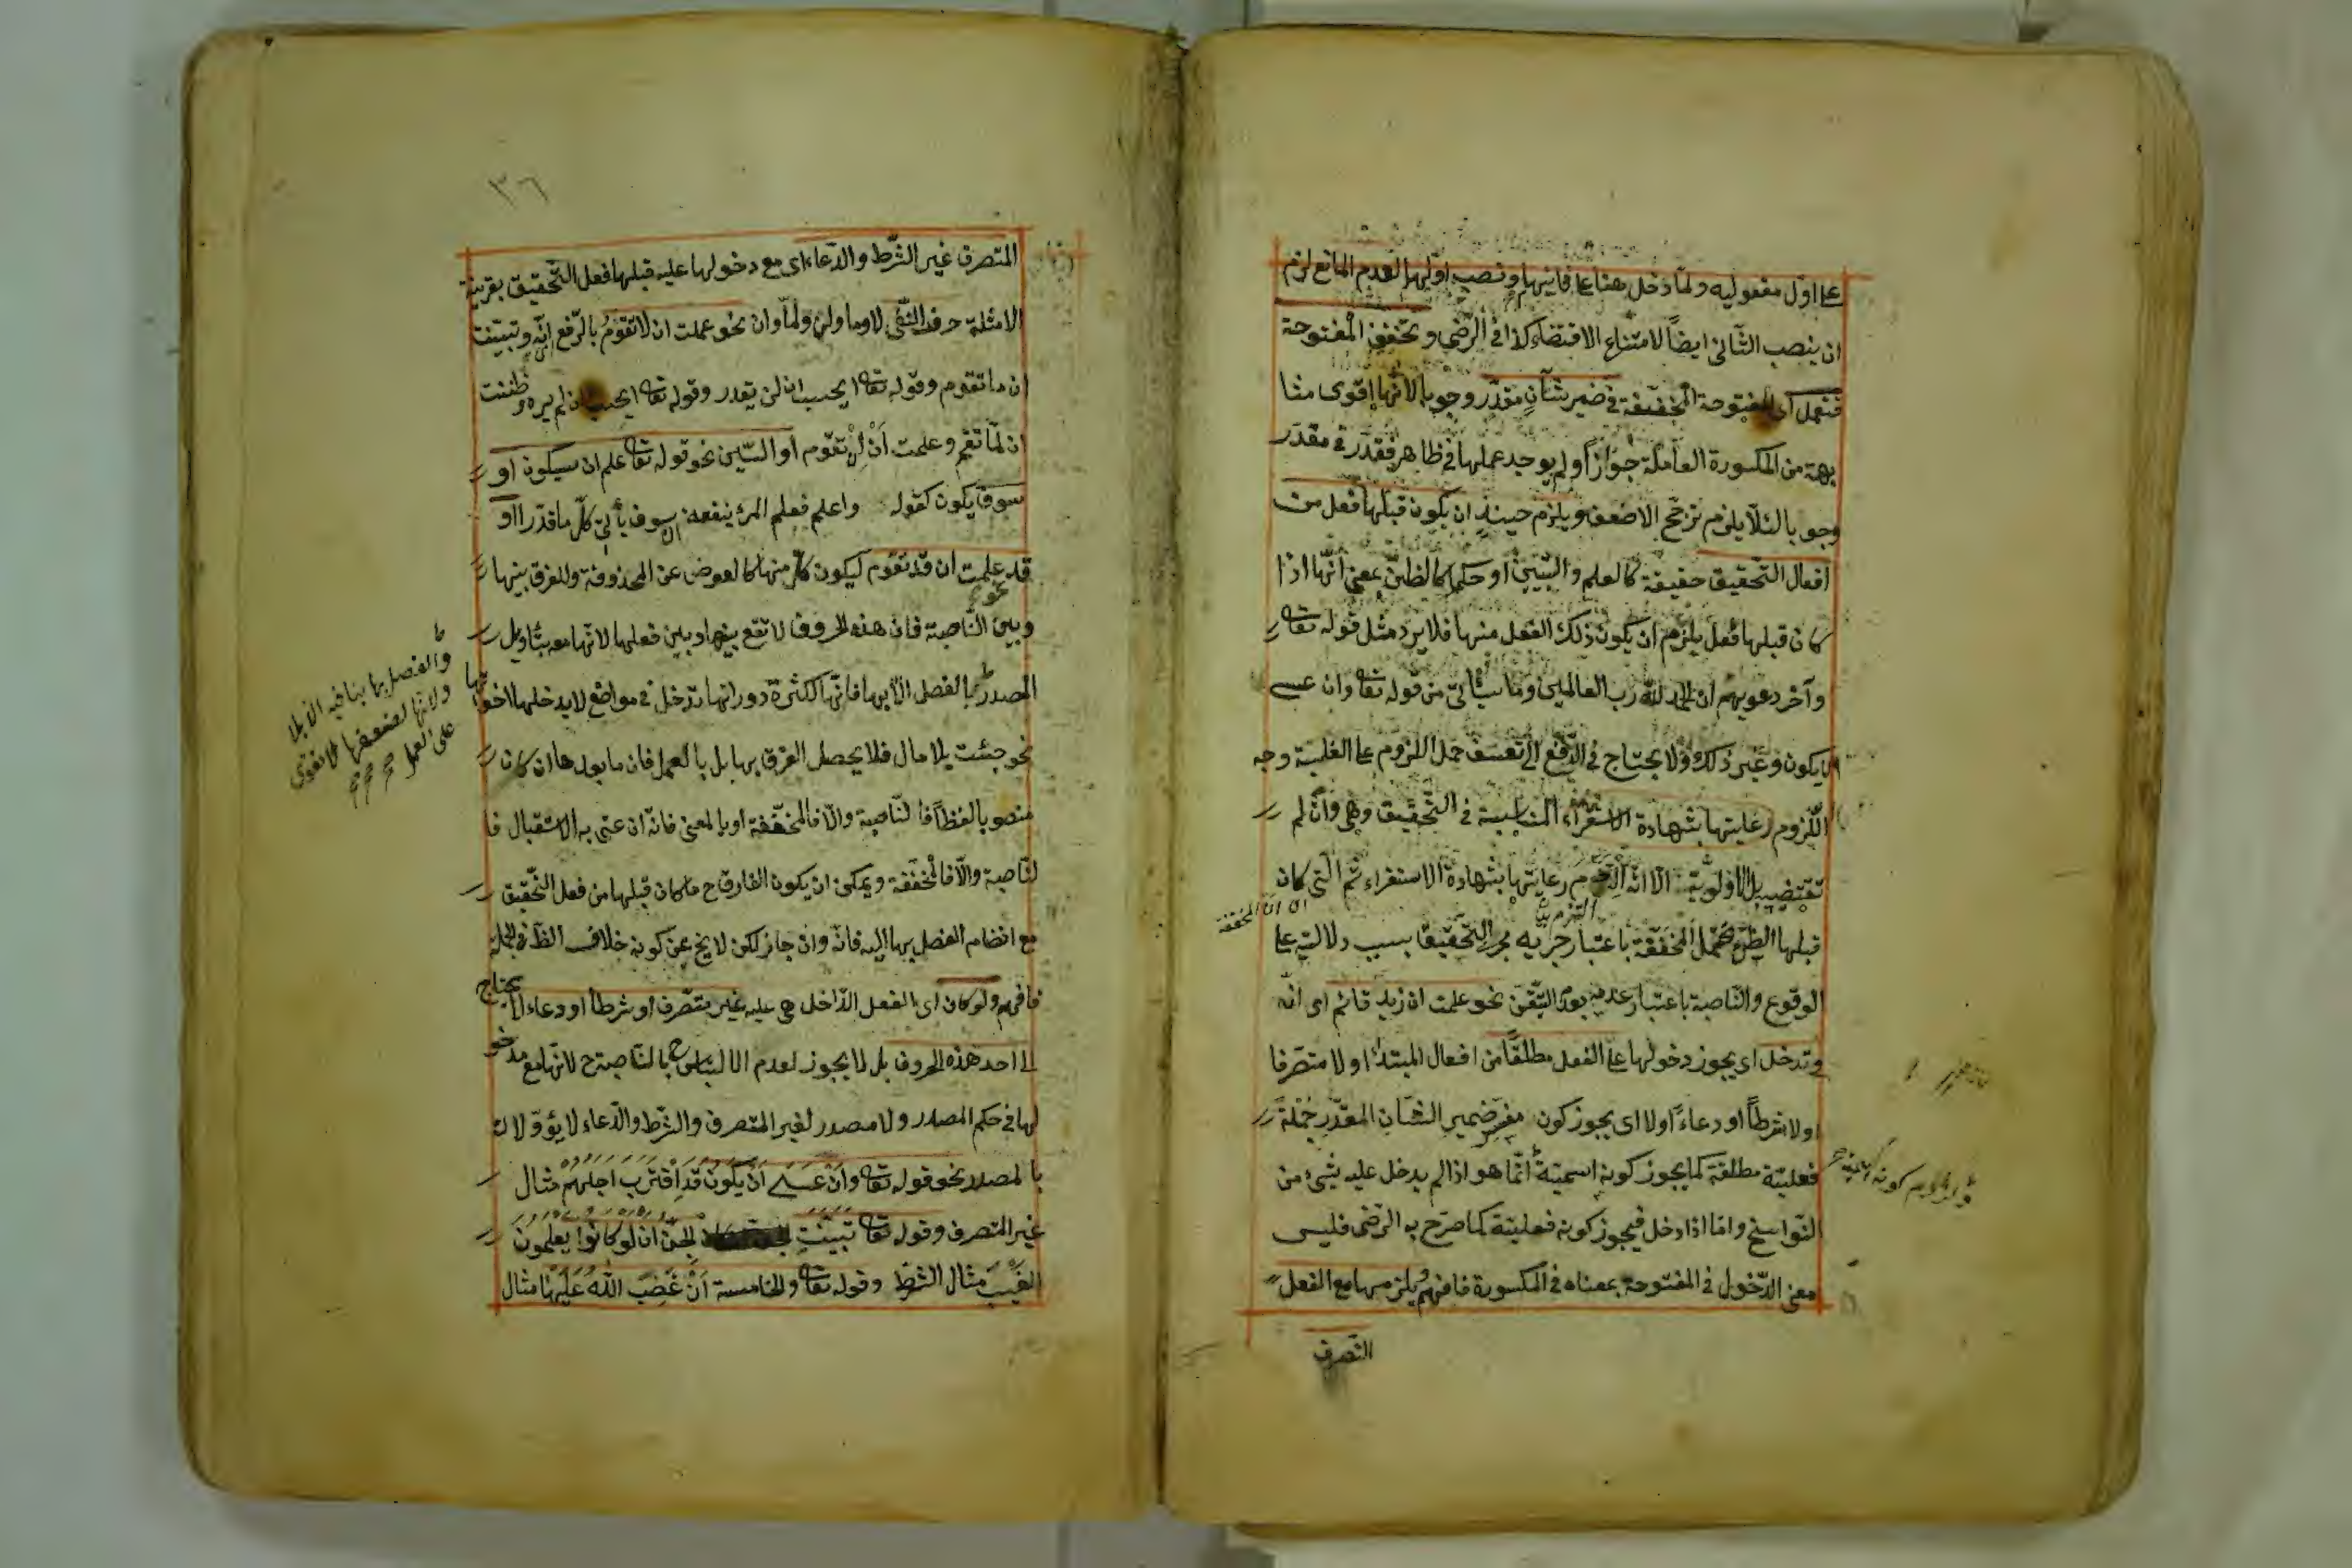 على اول مفعوليه ولما دخل هنا على ثانيهما ونصب اولهما لعدم المانع لزم
ان ينصب الثانى ايضاً لامتناع الاقتضاء كذا فى الرضى وتخفف المفتوحة
فتعمل اى المفتوحة المخففة فى ضمير شأن مقدر وجوبا لانها اقوى مشا
بهة من المكسورة العاملة جوازاً ولم يوجد عملها فى ظاهر فقدر فى مقدر
وجوبا لئلا يلزم ترجح الاضعف ويلزم حينئذٍ ان يكون قبلها فعل من
افعال التحقيق حقيقة كالعلم والتبيين او حكما كالظن بمعنى انها اذا
كان قبلها فعل يلزم ان يكون ذلك الفعل منها فلا يرد مثل قوله تعا
وآخر دعويهم ان الحمد لله رب العالمين وما سيأتى من قوله تعا وان عسى
ان يكون وغير ذلك ولا يحتاج فى الدفع الى تعسف حمل اللزوم على الغلبة وجه
اللزوم رعايتها بشهادة الاستقراء المناسبة فى التحقيق وهى وان لم
تقتض بل الاولوية الا انه التزم رعايتها بشهادة الاستقراء ثم التى كان
ان ان المخففة
قبلها الظن تحتمل المخففة باعتبار جريه مجرى التحقيق بسبب دلالته على
الوقوع والناصبة باعتبار عدم التيقن نحو علمت ان زيد قائم اى انه
وتدخل اى يجوز دخولها على الفعل مطلقاً من افعال المبتدأ او لا متصرفا
او لا شرطاً او دعاءً او لا اى يجوز كون مفسر ضمير الشان المقدر جملة
فعلية مطلقة كما يجوز كونه اسمية انما هو اذا لم يدخل عليه شئ من
النواسخ واما اذا دخل فيجوز كونه فعلية كما صرح به الرضى فليس
معنى الدخول فى المفتوحة بمعناه فى المكسورة فافهم ويلزمها مع الفعل
المتصرف
٣٦
المتصرف غير الشرط والدعاء اى مع دخولها عليه قبلها فعل التحقيق بقرينة
الامثلة حرف النفى لا وما ولن ولما وان نحو علمت ان لا تقوم بالرفع وتبينت
ان ما تقوم وقوله تعا ايحسب ان لن يقدر وقوله تعا ايحسب ان لم يره وظننت
ان لما تقم وعلمت ان تقوم او السين نحو قوله تعا علم ان سيكون او
سوف يكون كقوله واعلم فعلم المرء ينفعه ان سوف يأتى كل ما قدرا او
قد علمت ان قد تقوم ليكون كل منها كالعوض عن المحذوفة وللفرق بينها
وبين الناصبة فان هذه الحروف لا تقع بينها وبين فعلها لانها معه بتأويل
المصدر بالفصل الا بها فانها لكثرة دورانها تدخل فى مواضع لا يدخلها اخواتها
نحو جئت بلا مال فلا يحصل الفرق بها بل بالعمل فان مابعدها ان كان
منصوبا لفظاً فالناصبة والا فالمخففة او بالمعنى فانه ان عنى به الاستقبال فا
لناصبة والا فالمخففة ويمكن ان يكون الفارق ح ما كان قبلها من فعل التحقيق
مع انضام الفصل بها اليه فانه وان جاز لكن لا يخ عن كونه خلاف الظ فى الجملة
فافهم ولو كان اى الفعل الداخل هى عليه غير متصرف او شرطاً او دعاء لا يحتاج
الى احد هذه الحروف بل لا يجوز لعدم الالتباس ح بالناصبة ح لانها مع مدخو
لها فى حكم المصدر ولا مصدر لغير المتصرف والشرط والدعاء لا يؤولان
بالمصدر نحو قوله تعا وَاَنْ عَسَى اَنْ يَكُونَ قَدِ اقْتَرَبَ اَجَلُهُمْ مثال
غير المتصرف وقوله تعا تَبَيَّنَتِ الْجِنُّ اَنْ لَوْ كَانُوا يَعْلَمُونَ
الغَيْبَ مثال الشرط وقوله تعا والخامسة اَنْ غَضِبَ اللهُ عَلَيْهَا مثال
والفصل بها ينافيه
ولانها لضعفها لا تقوى
على العمل